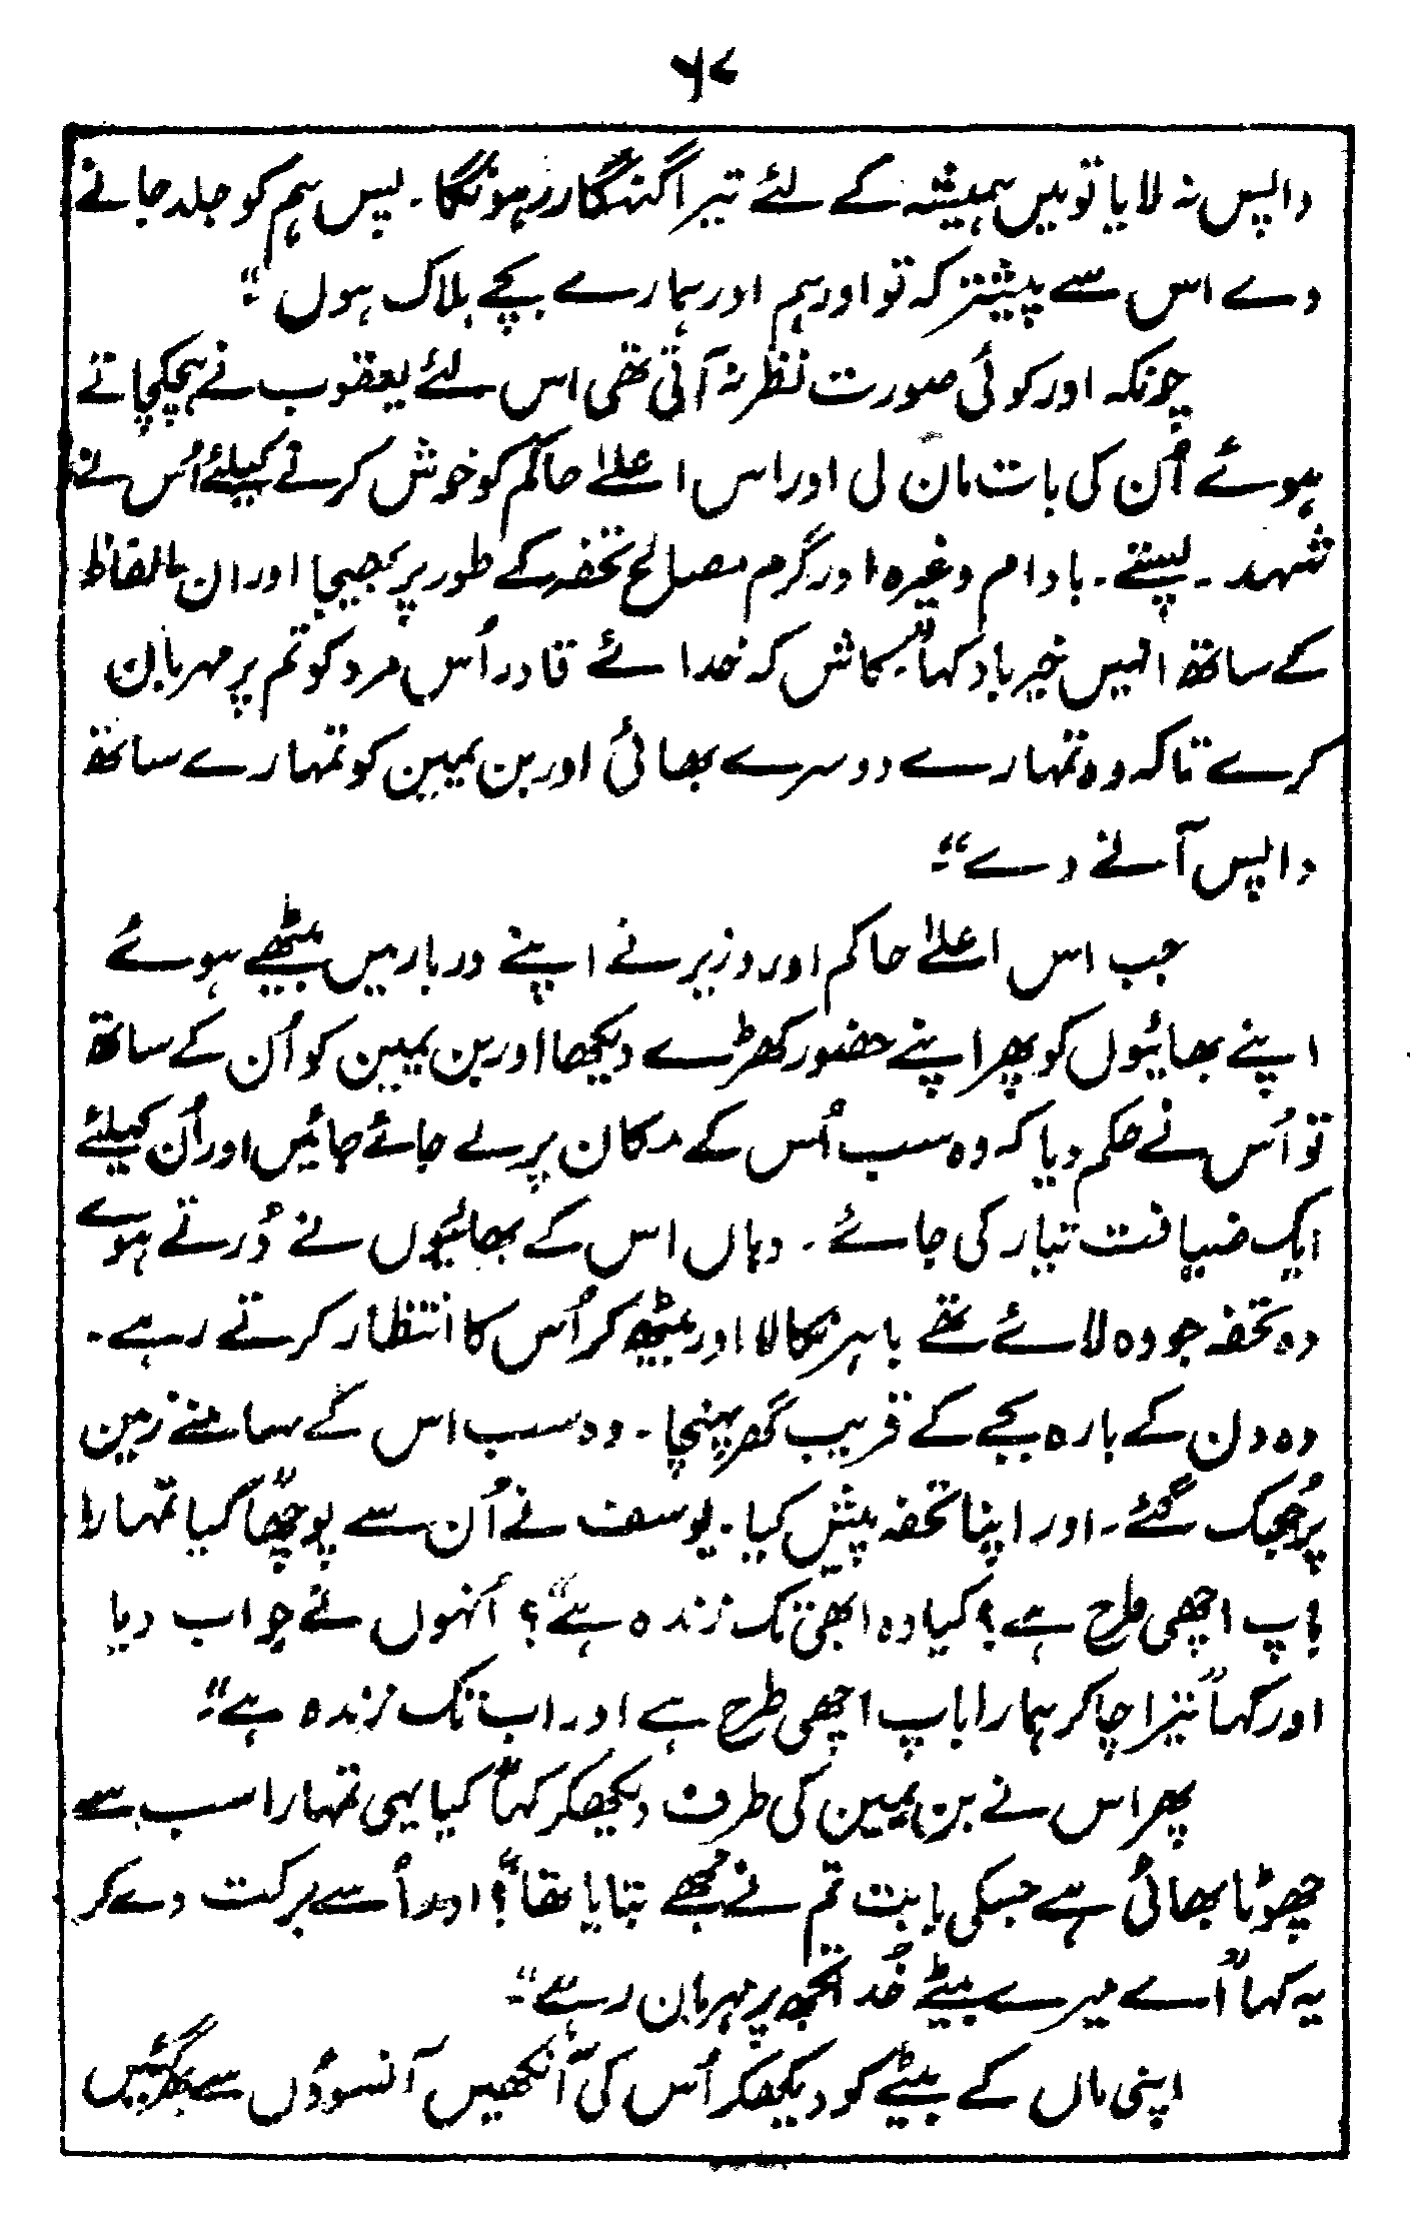 ۶۷
واپس نہ لایا تو میں ہمیشہ کے لئے تیرا گنہگار رہونگا۔ پس ہم کو جلد جانے
دے اس سے پیشتر کہ تو اور ہم اور ہمارے بچے ہلاک ہوں“۔
چونکہ اور کوئی صورت نظر نہ آتی تھی اس لئے یعقوب نے ہچکچاتے
ہوئے اُن کی بات مان لی اور اس اعلےٰ حاکم کو خوش کرنے کیلئے اُس نے
شہد۔ پستے۔ بادام وغیرہ اور گرم مصالح تحفہ کے طور پر بھیجا اور ان الفاظ
کے ساتھ انہیں خیر باد کہا ”کاش کہ خدائے قادر اُس مرد کو تم پر مہربان
کرے تاکہ وہ تمہارے دوسرے بھائی اور بن یمین کو تمہارے ساتھ
واپس آنے دے“۔
جب اس اعلےٰ حاکم اور وزیر نے اپنے دربار میں بیٹھے ہوئے
اپنے بھائیوں کو پھر اپنے حضور کھڑے دیکھا اور بن یمین کو اُن کے ساتھ
تو اُس نے حکم دیا کہ وہ سب اُس کے مکان پر لے جائے جائیں اور اُن کیلئے
ایک ضیافت تیار کی جائے۔ وہاں اس کے بھائیوں نے ڈرتے ہوئے
وہ تحفہ جو وہ لائے تھے باہر نکالا اور بیٹھ کر اُس کا انتظار کرتے رہے۔
وہ دن کے بارہ بجے کے قریب گھر پہنچا۔ وہ سب اس کے سامنے زمین
پر جُھک گئے۔ اور اپنا تحفہ پیش کیا۔ یوسف نے اُن سے پوچھا ”کیا تمہارا
باپ اچھی طرح ہے؟ کیا وہ ابھی تک زندہ ہے“؟ اُنہوں نے جواب دیا
اور کہا ”تیرا چاکر ہمارا باپ اچھی طرح ہے اور اب تک زندہ ہے“۔
پھر اس نے بن یمین کی طرف دیکھکر کہا ”کیا یہی تمہارا سب سے
چھوٹا بھائی ہے جسکی بابت تم نے مُجھے بتایا تھا“؟ اور اُسے برکت دے کر
یہ کہا ”اُے میرے بیٹے خُدا تجھ پر مہربان رہے“۔
اپنی ماں کے بیٹے کو دیکھکر اُس کی آنکھیں آنسوؤں سے بھرگئیں